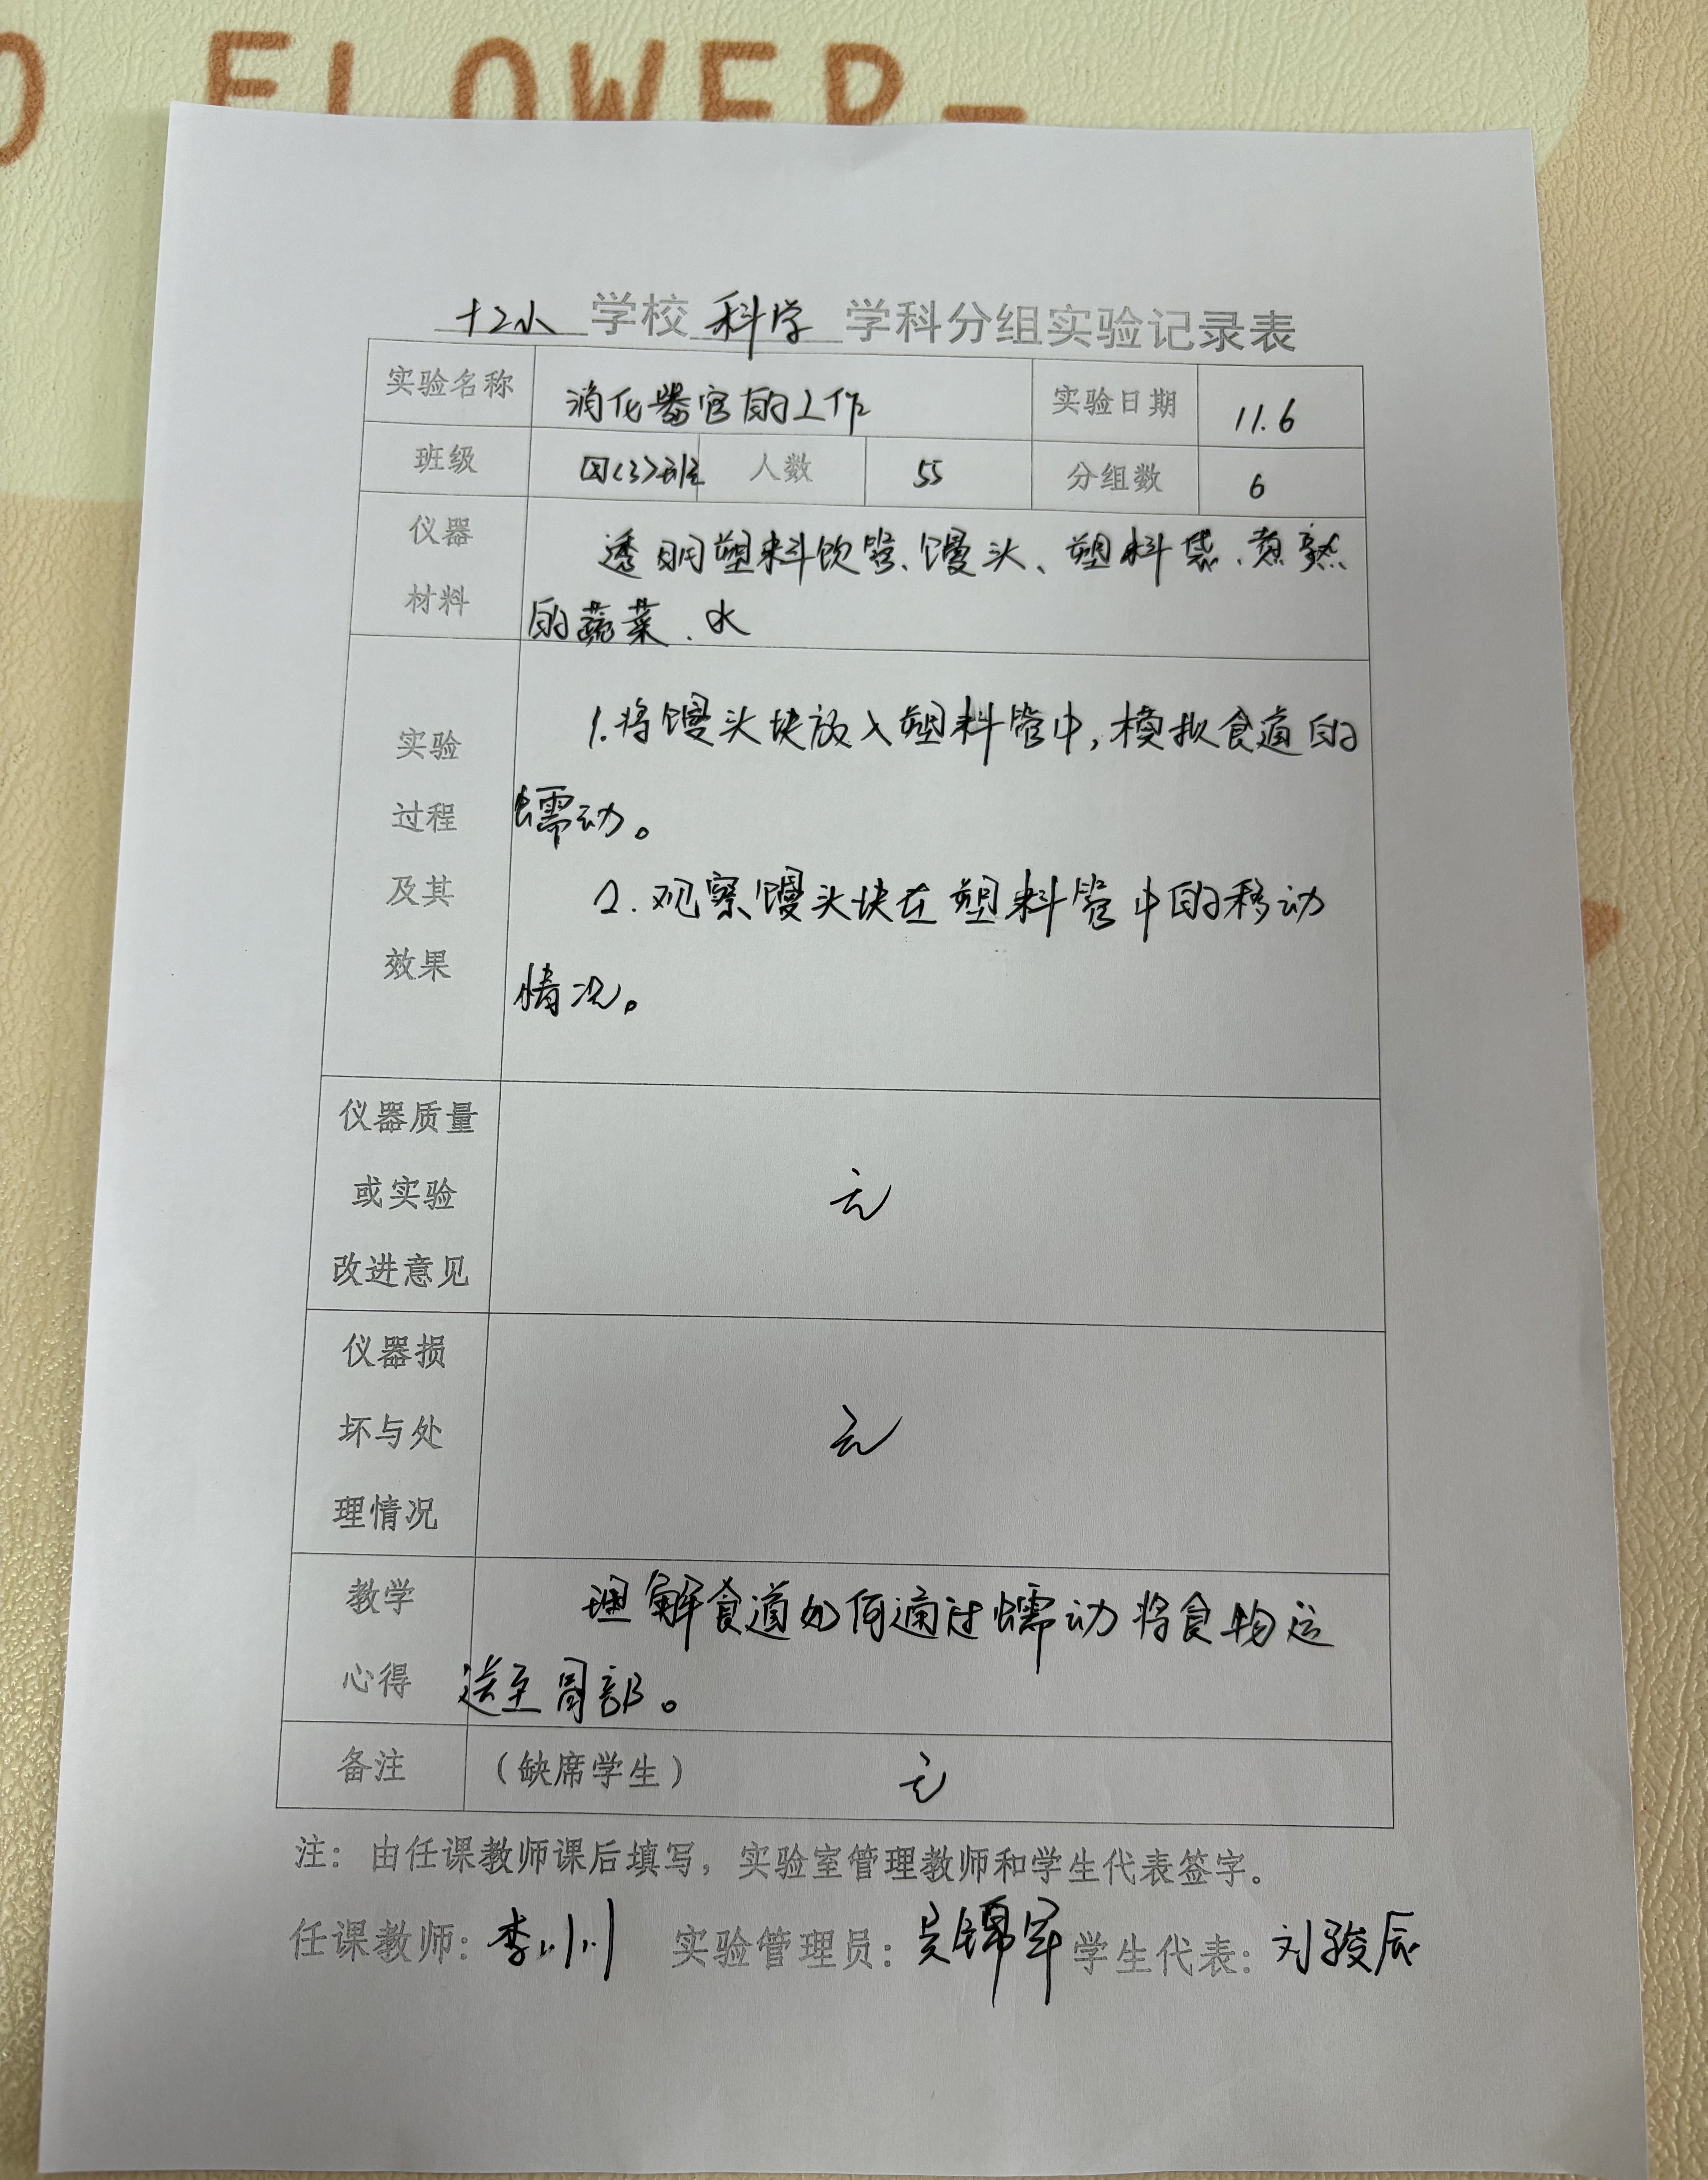 O FLOWER-
十二小 学校 科学 学科分组实验记录表
实验名称 消化器官的工作 实验日期 11.6
班级 四(3)班 人数 55 分组数 6
仪器材料 透明塑料饮管、馒头、塑料袋、煮熟
的蔬菜、水
实验过程及其效果 1.将馒头块放入塑料管中,模拟食道的
蠕动。
2.观察馒头块在塑料管中的移动
情况。
仪器质量或实验改进意见 无
仪器损坏与处理情况 无
教学心得 理解食道如何通过蠕动将食物运
送至胃部。
备注 (缺席学生) 无
注：由任课教师课后填写，实验室管理教师和学生代表签字。
任课教师: 李小川 实验管理员: 吴锦军 学生代表: 刘骏辰